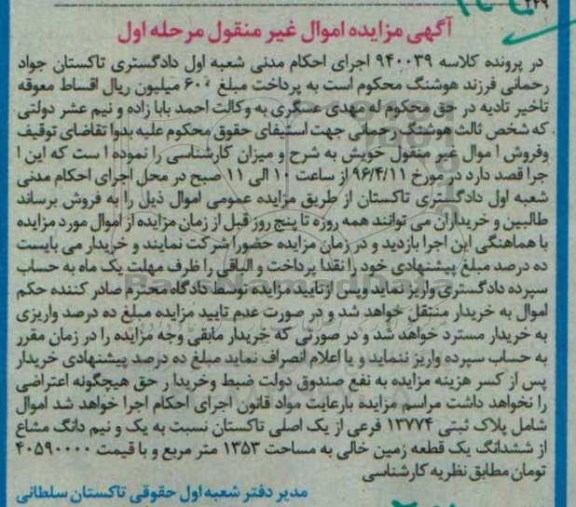 ۲۴۹
آگهی مزایده اموال غیر منقول مرحله اول
در پرونده کلاسه ۹۴۰۰۳۹ اجرای احکام مدنی شعبه اول دادگستری تاکستان جواد
رحمانی فرزند هوشنگ محکوم است به پرداخت مبلغ ۶۰۰ میلیون ریال اقساط معوقه
تاخیر تادیه در حق محکوم له مهدی عسگری به وکالت احمد بابا زاده و نیم عشر دولتی
که شخص ثالث هوشنگ رحمانی جهت استیفای حقوق محکوم علیه بدوا تقاضای توقیف
وفروش ا موال غیر منقول خویش به شرح و میزان کارشناسی را نموده ا ست که این ا
جرا قصد دارد در مورخ ۹۶/۴/۱۱ از ساعت ۱۰ الی ۱۱ صبح در محل اجرای احکام مدنی
شعبه اول دادگستری تاکستان از طریق مزایده عمومی اموال ذیل را به فروش برساند
طالبین و خریداران می توانند همه روزه تا پنج روز قبل از زمان مزایده از اموال مورد مزایده
با هماهنگی این اجرا بازدید و در زمان مزایده حضورا شرکت نمایند و خریدار می بایست
ده درصد مبلغ پیشنهادی خود را نقدا پرداخت و الباقی را ظرف مهلت یک ماه به حساب
سپرده دادگستری واریز نماید وپس از تایید مزایده توسط دادگاه محترم صادر کننده حکم
اموال به خریدار منتقل خواهد شد و در صورت عدم تایید مزایده مبلغ ده درصد واریزی
به خریدار مسترد خواهد شد و در صورتی که خریدار مابقی وجه مزایده را در زمان مقرر
به حساب سپرده واریز ننماید و یا اعلام انصراف نماید مبلغ ده درصد پیشنهادی خریدار
پس از کسر هزینه مزایده به نفع صندوق دولت ضبط وخریدا ر حق هیچگونه اعتراضی
را نخواهد داشت مراسم مزایده بارعایت مواد قانون اجرای احکام اجرا خواهد شد اموال
شامل پلاک ثبتی ۱۳۷۷۴ فرعی از یک اصلی تاکستان نسبت به یک و نیم دانگ مشاع
از ششدانگ یک قطعه زمین خالی به مساحت ۱۳۵۳ متر مربع و با قیمت ۴۰۵۹۰۰۰۰
تومان مطابق نظریه کارشناسی
مدیر دفتر شعبه اول حقوقی تاکستان سلطانی